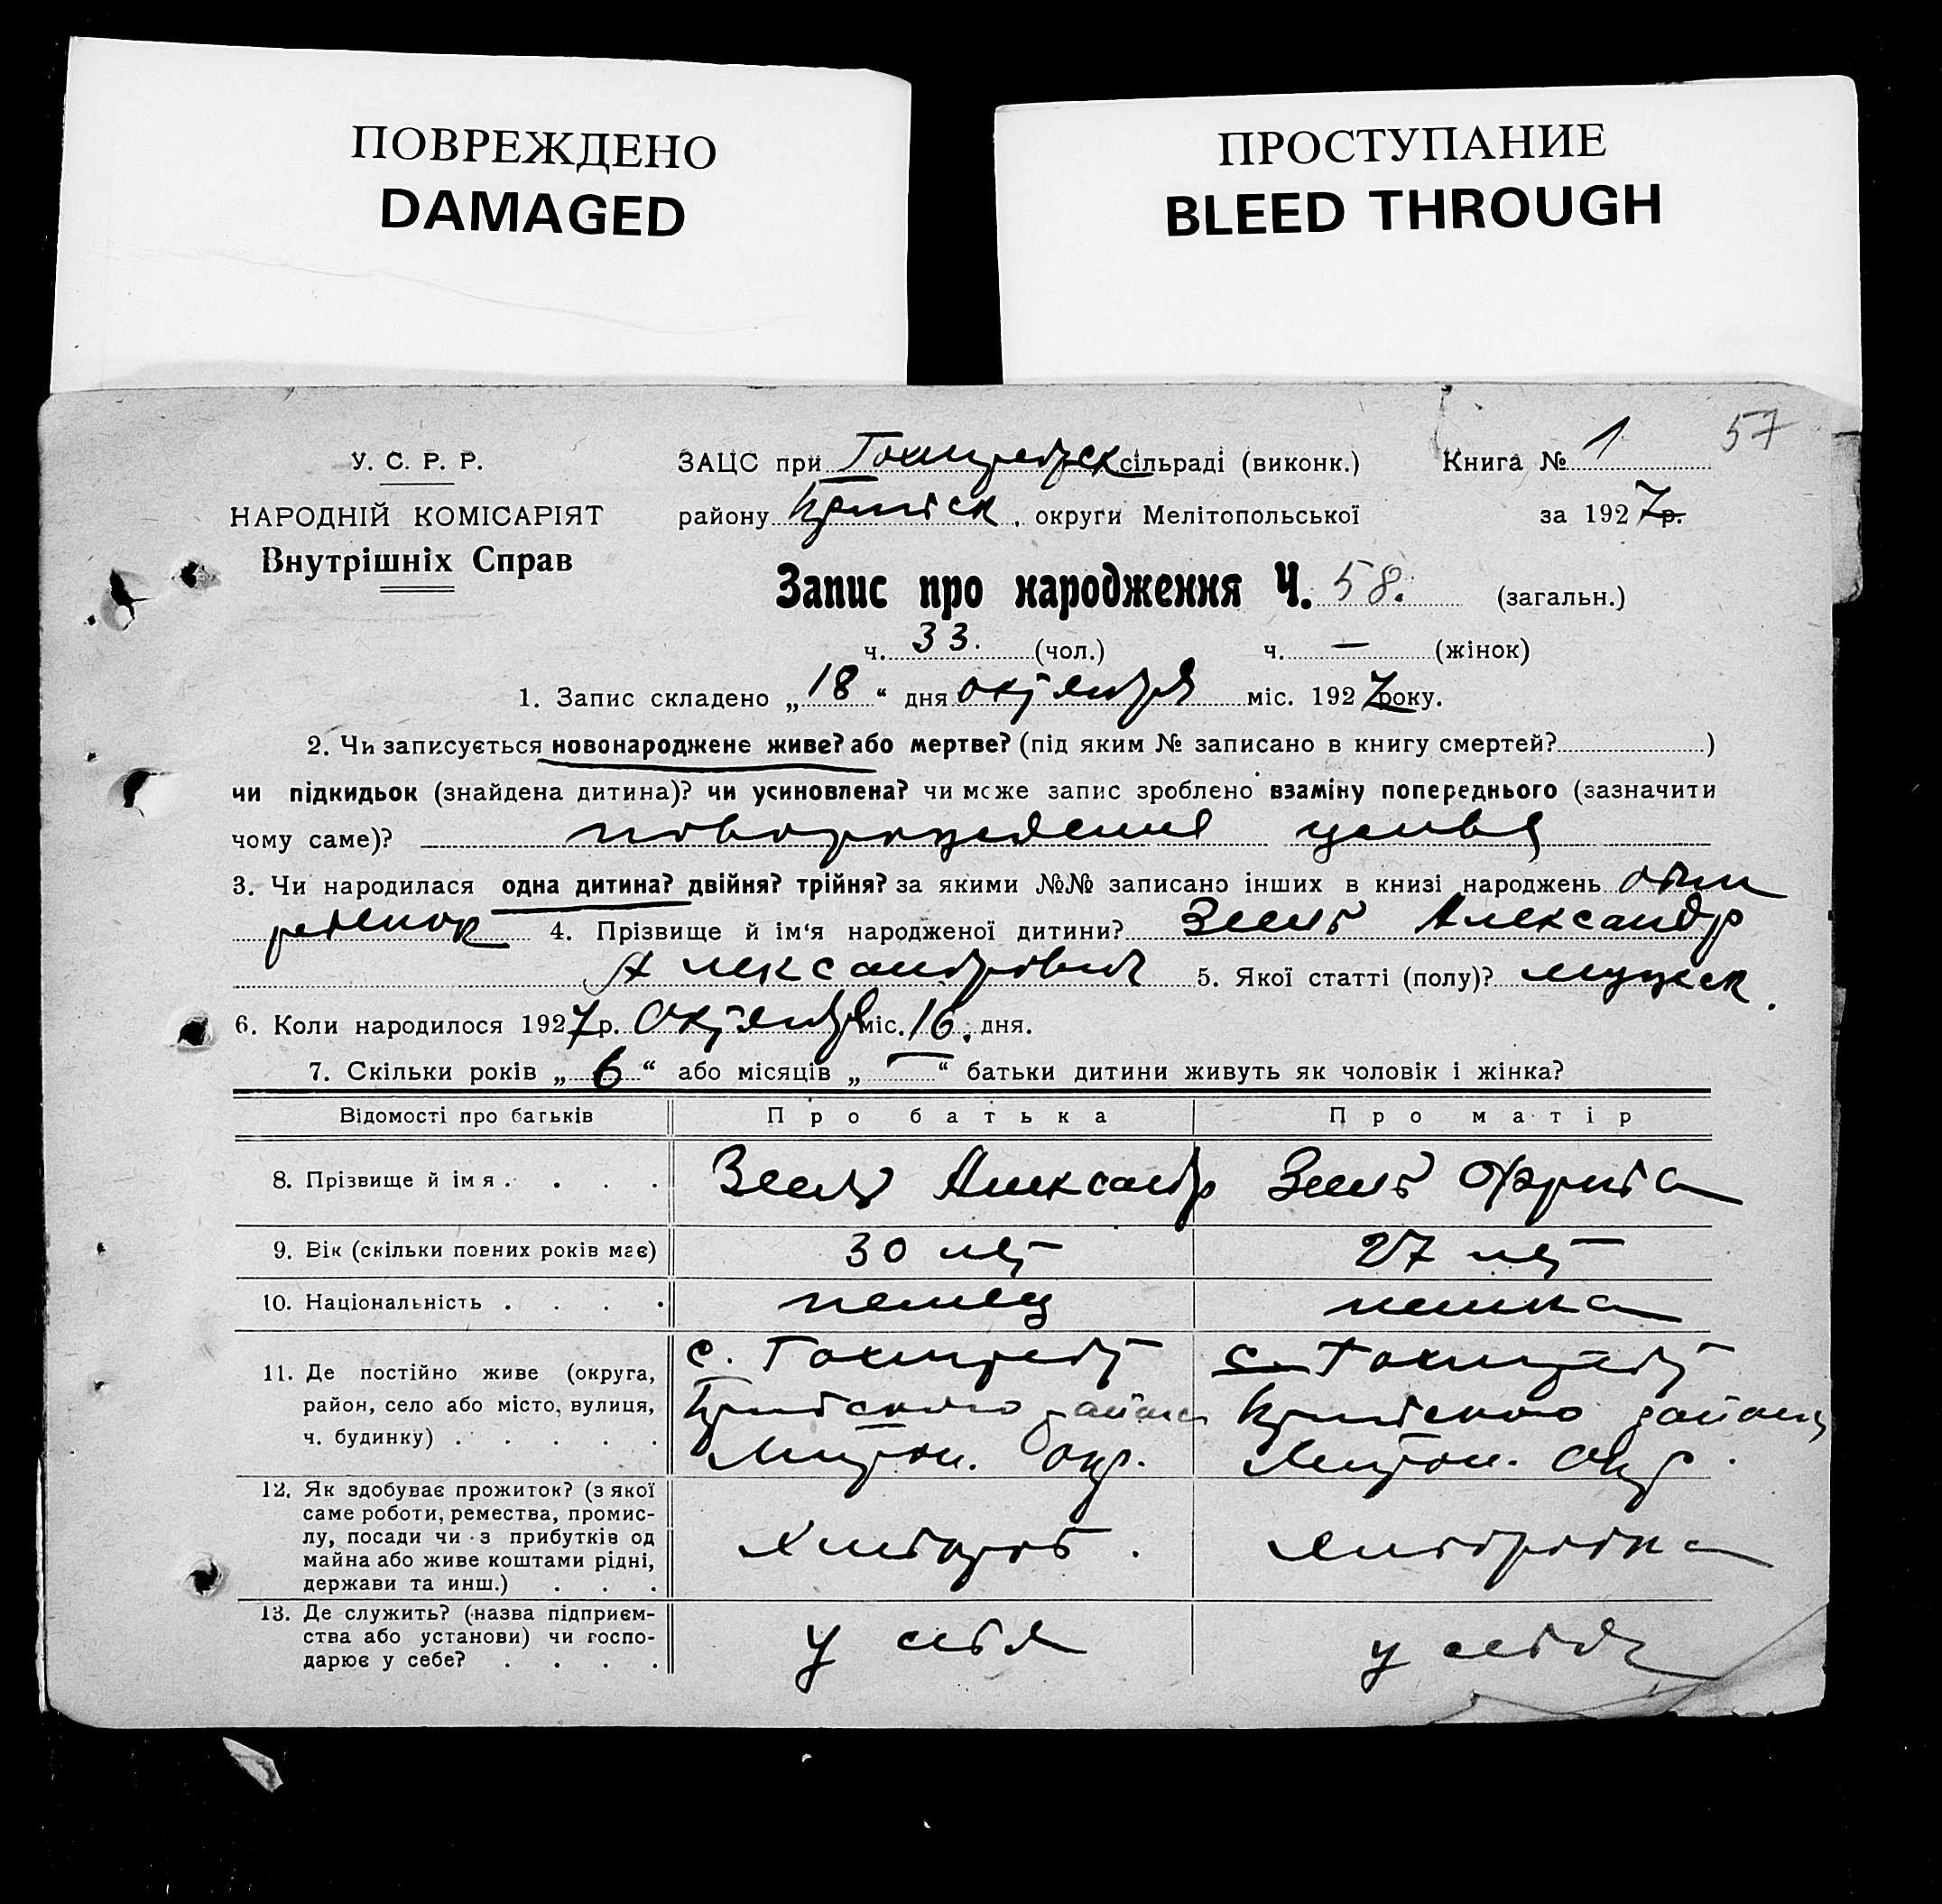 ПОВРЕЖДЕНО
DAMAGED
ПРОСТУПАНИЕ
BLEED THROUGH
57
У. С. Р. Р.
НАРОДНІЙ КОМІСАРІЯТ
Внутрішніх Справ
ЗАЦС при сільраді (виконк.) Книга № 1
району округи Мелітопольської за 1927 р.
Запис про народження Ч. 58. (загальн.)
ч. 33. (чол.) ч. — (жінок)
1. Запис складено „18“ дня октября міс. 1927 року.
2. Чи записується новонароджене живе? або мертве? (під яким № записано в книгу смертей? )
чи підкидьок (знайдена дитина)? чи усиновлена? чи може запис зроблено взаміну попереднього (зазначити
чому саме)?
3. Чи народилася одна дитина? двійня? трійня? за якими №№ записано інших в книзі народжень один
ребенок 4. Прізвище й ім'я народженої дитини? Александр
Александрович 5. Якої статті (полу)? мужск.
6. Коли народилося 1927 р. Октября міс. 16. дня.
7. Скільки років „6“ або місяців „—“ батьки дитини живуть як чоловік і жінка?
Відомості про батьків Про батька Про матір
8. Прізвище й імя . . . . Александр
9. Вік (скільки повних років має) 30 лет 27 лет
10. Національність . . . . немец немка
11. Де постійно живе (округа, район, село або місто, вулиця, ч. будинку) . . . . .
с.
района
Окр.
с.
района
Окр.
12. Як здобуває прожиток? (з якої
саме роботи, ремества, промис-
лу, посади чи з прибутків од
майна або живе коштами рідні,
держави та инш.) . . .
Хлебороб. хлебробка
13. Де служить? (назва підприєм-
ства або установи) чи госпо-
дарює у себе? . . . .
у себя у себя